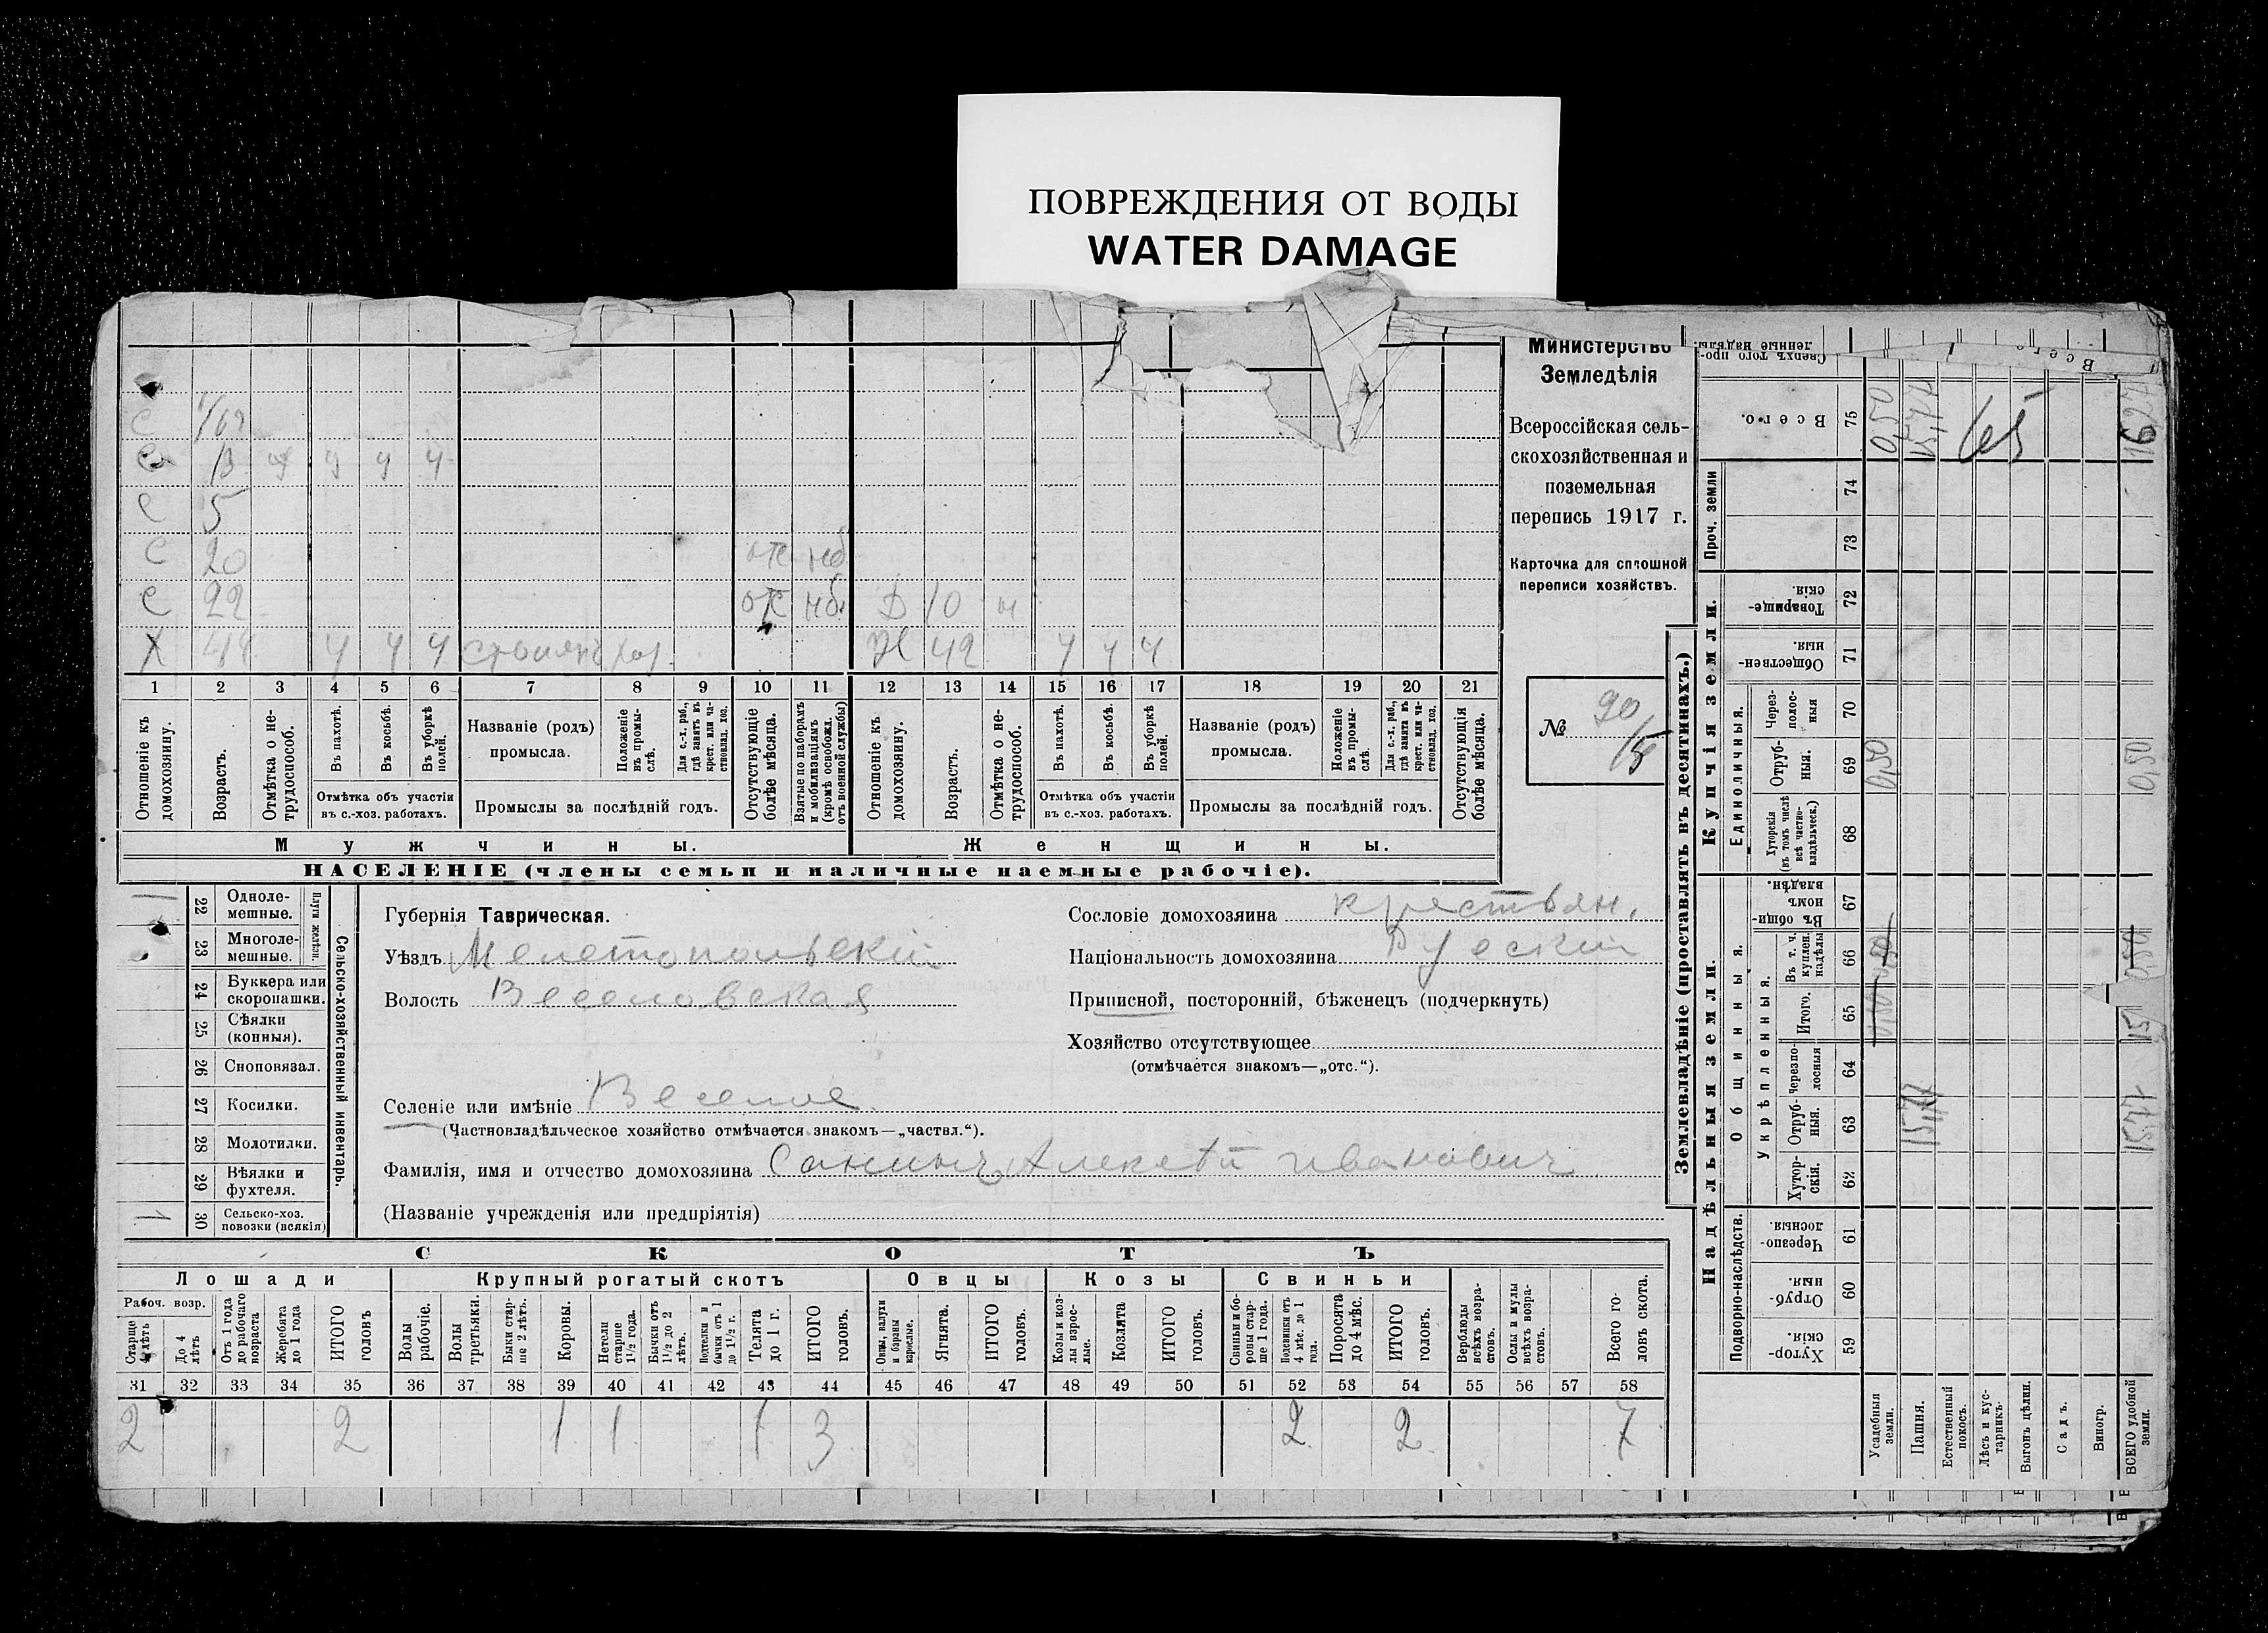 ПОВРЕЖДЕНИЯ ОТ ВОДЫ
WATER DAMAGE
Министерство
Земледѣлія
Всероссійская сель-
скохозяйственная и
поземельная
перепись 1917 г.
Карточка для сплошной
переписи хозяйствъ.
№ 90/
С
С 13 ч ч ч
С 5
С 20 отс нб
С 22 отс нб. Д 10 н
Х 44 ч ч ч хоз. Ж 42 ч ч ч
1 2 3 4 5 6 7 8 9 10 11 12 13 14 15 16 17 18 19 20 21
Отношеніе къ домохозяину.
Возрастъ.
Отмѣтка о не-трудоспособ.
Въ пахотѣ.
Въ косьбѣ.
Въ уборкѣ полей.
Отмѣтка объ участіи
въ с.-хоз. работахъ.
Названіе (родъ)
промысла.
Положеніе въ промы-слѣ.
Для с.-х. раб., гдѣ занятъ въ крест. или ча-стновлад. хоз.
Промыслы за послѣдній годъ.
Отсутствующіе болѣе мѣсяца.
Взятые по наборамъ и мобилизаціямъ (кромѣ освобожд. отъ военной службы)
Отношеніе къ домохозяину.
Возрастъ.
Отмѣтка о не-трудоспособ.
Въ пахотѣ.
Въ косьбѣ.
Въ уборкѣ полей.
Отмѣтка объ участіи
въ с.-хоз. работахъ.
Названіе (родъ)
промысла.
Положеніе въ промы-слѣ.
Для с.-х. раб., гдѣ занята въ крест. или ча-стновлад. хоз.
Промыслы за послѣдній годъ.
Отсутствующія болѣе мѣсяца.
Мужчины.
Женщины.
НАСЕЛЕНІЕ (члены семьи и наличные наемные рабочіе).
Сельско-хозяйственный инвентарь.
Плуги желѣзн.
22 Одноле-мешные. 1
23 Многоле-мешные.
24 Буккера или скоропашки.
25 Сѣялки (конныя).
26 Сноповязал.
27 Косилки.
28 Молотилки.
29 Вѣялки и фухтеля.
30 Сельско-хоз. повозки (всякія) 1
Губернія Таврическая.
Уѣздъ Мелетопольскій
Волость Веселовская
Сословіе домохозяина крестьян.
Національность домохозяина Русскій
Приписной, посторонній, бѣженецъ (подчеркнуть)
Хозяйство отсутствующее
(отмѣчается знакомъ—„отс.“).
Селеніе или имѣніе Веселое
(Частновладѣльческое хозяйство отмѣчается знакомъ—„частвл.“).
Фамилія, имя и отчество домохозяина Алексѣй Иванович
(Названіе учрежденія или предпріятія)
СКОТЪ
Лошади
Крупный рогатый скотъ
Овцы
Козы
Свиньи
Рабоч. возр.
Старше 4 лѣтъ
До 4 лѣтъ
Отъ 1 года до рабочаго возраста
Жеребята до 1 года
ИТОГО головъ
Волы рабочіе.
Волы третьяки.
Быки стар-ше 2 лѣтъ.
Коровы.
Нетели старше 1½ года.
Бычки отъ 1½ до 2 лѣтъ.
Подтелки и бычки отъ 1 до 1½ г.
Телята до 1 г.
ИТОГО головъ.
Овцы, валухи и бараны взрослые.
Ягнята.
ИТОГО головъ.
Козы и коз-лы взрос-лые.
Козлята
ИТОГО головъ.
Свиньи и бо-ровы стар-ше 1 года.
Подсвинки отъ 4 мѣс. до 1 года.
Поросята до 4 мѣс.
ИТОГО головъ.
Верблюды всѣхъ возра-стовъ.
Ослы и мулы всѣхъ возра-стовъ.
Всего го-ловъ скота.
31 32 33 34 35 36 37 38 39 40 41 42 43 44 45 46 47 48 49 50 51 52 53 54 55 56 57 58
2 2 1 1 1 3 2 2 7
Землевладѣніе (проставлять въ десятинахъ.)
Сверхъ того про-
Всего
Всего. 75 0,50 15,77 65 1627
Проч. земли
74
73
Купчія земли.
Товарище-скія 72
Обществен-ныя. 71
Единоличныя.
Через-полос-ныя 70
Отруб-ныя. 69 0,50 0,50
Хуторскія (въ томъ числѣ всѣ частно-владѣльческ.) 68
Надѣльныя земли.
Общинныя.
Въ общин-номъ владѣн. 67
Укрѣпленныя.
Въ т. ч. куплен. надѣлы 66
Итого. 65
Черезпо-лосныя 64
Отруб-ныя. 63 15,77
Хутор-скія. 62
Подворно-наслѣдств.
Черезпо-лосныя. 61
Отруб-ныя. 60
Хутор-скія. 59
Усадебныя земли.
Пашня.
Естественный покосъ.
Лѣсъ и кус-тарникъ.
Выгонъ цѣлин.
Садъ.
Виногр.
ВСЕГО удобной земли.